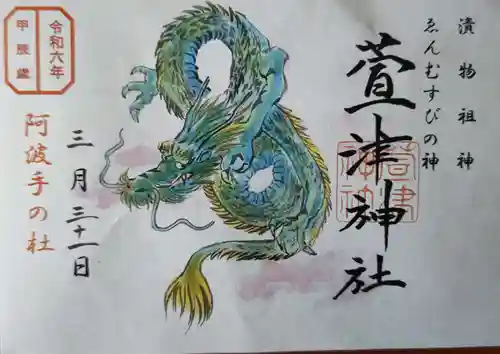 漬物祖神
ゑんむすびの神
萱津神社
令和六年
甲辰歳
三月三十一日
阿波手の杜